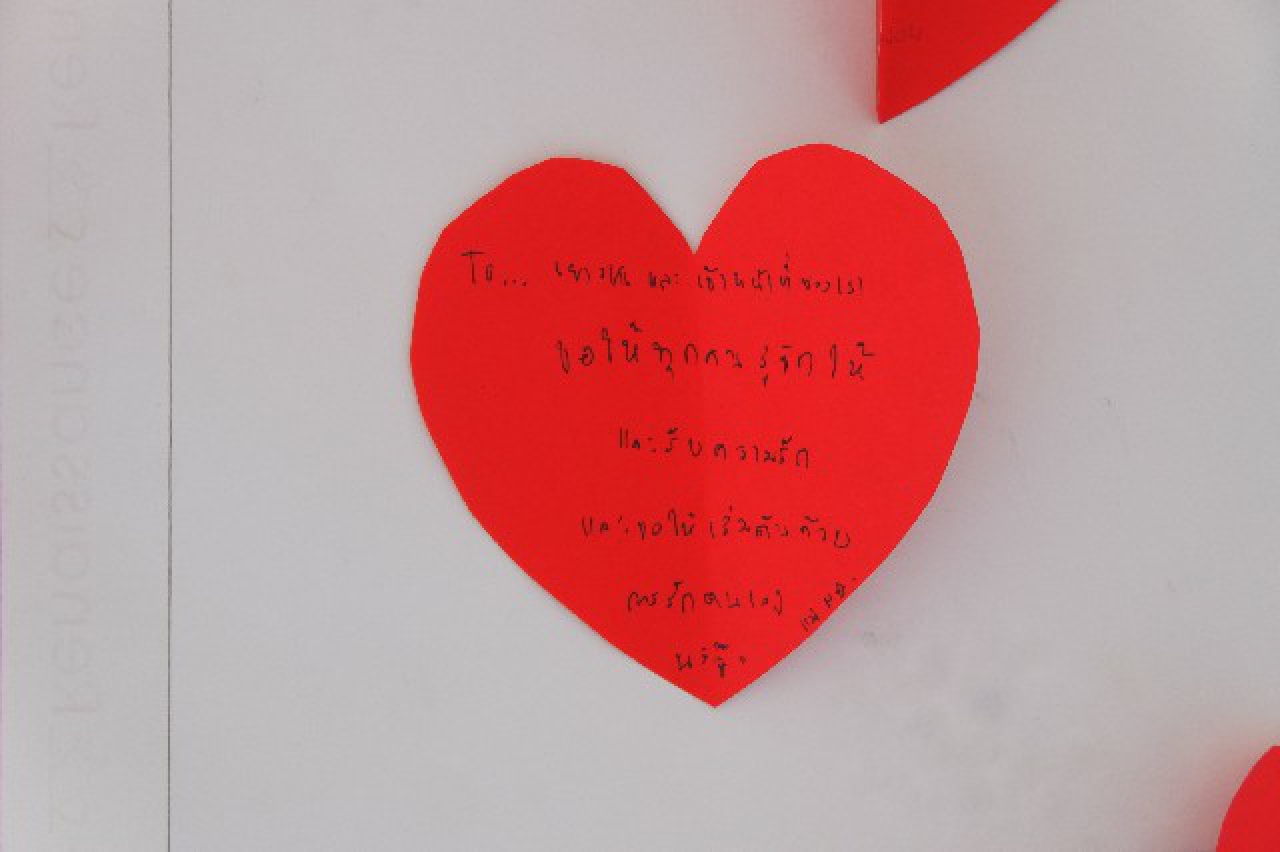 To... เยาวชน และ เจ้าหน้าที่ของเรา
ขอให้ทุกคนรู้จักให้
และรับความรัก
และขอให้เริ่มต้นด้วย
การรักตนเอง